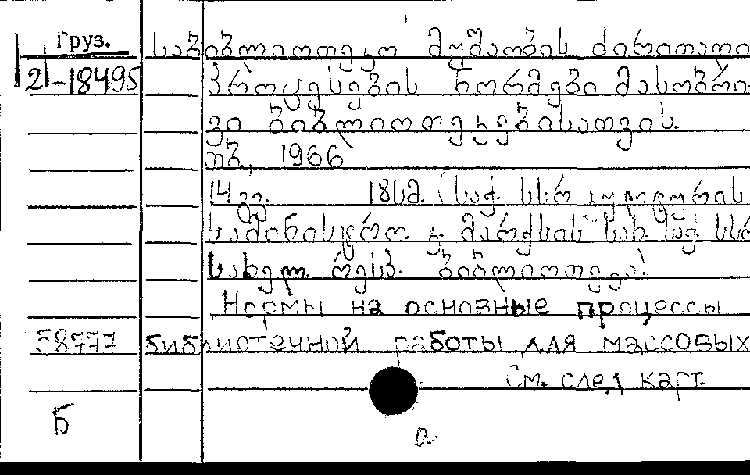 Груз.
21-18495
საბიბლიოთეკო მუშაობის ძირითადი
პროცესების ნორმები მასობრი-
ვი ბიბლიოთეკებისათვის.
თბ., 1966
14 გვ. 18სმ. (საქ. სსრ კულტურის
სამინისტრო. კ. მარქსის სახ. საქ. სსრ
სახელმ. რესპ. ბიბლიოთეკა)
Нормы на основные процессы
58777 библиотечной работы для массовых
См. след карт.
Б